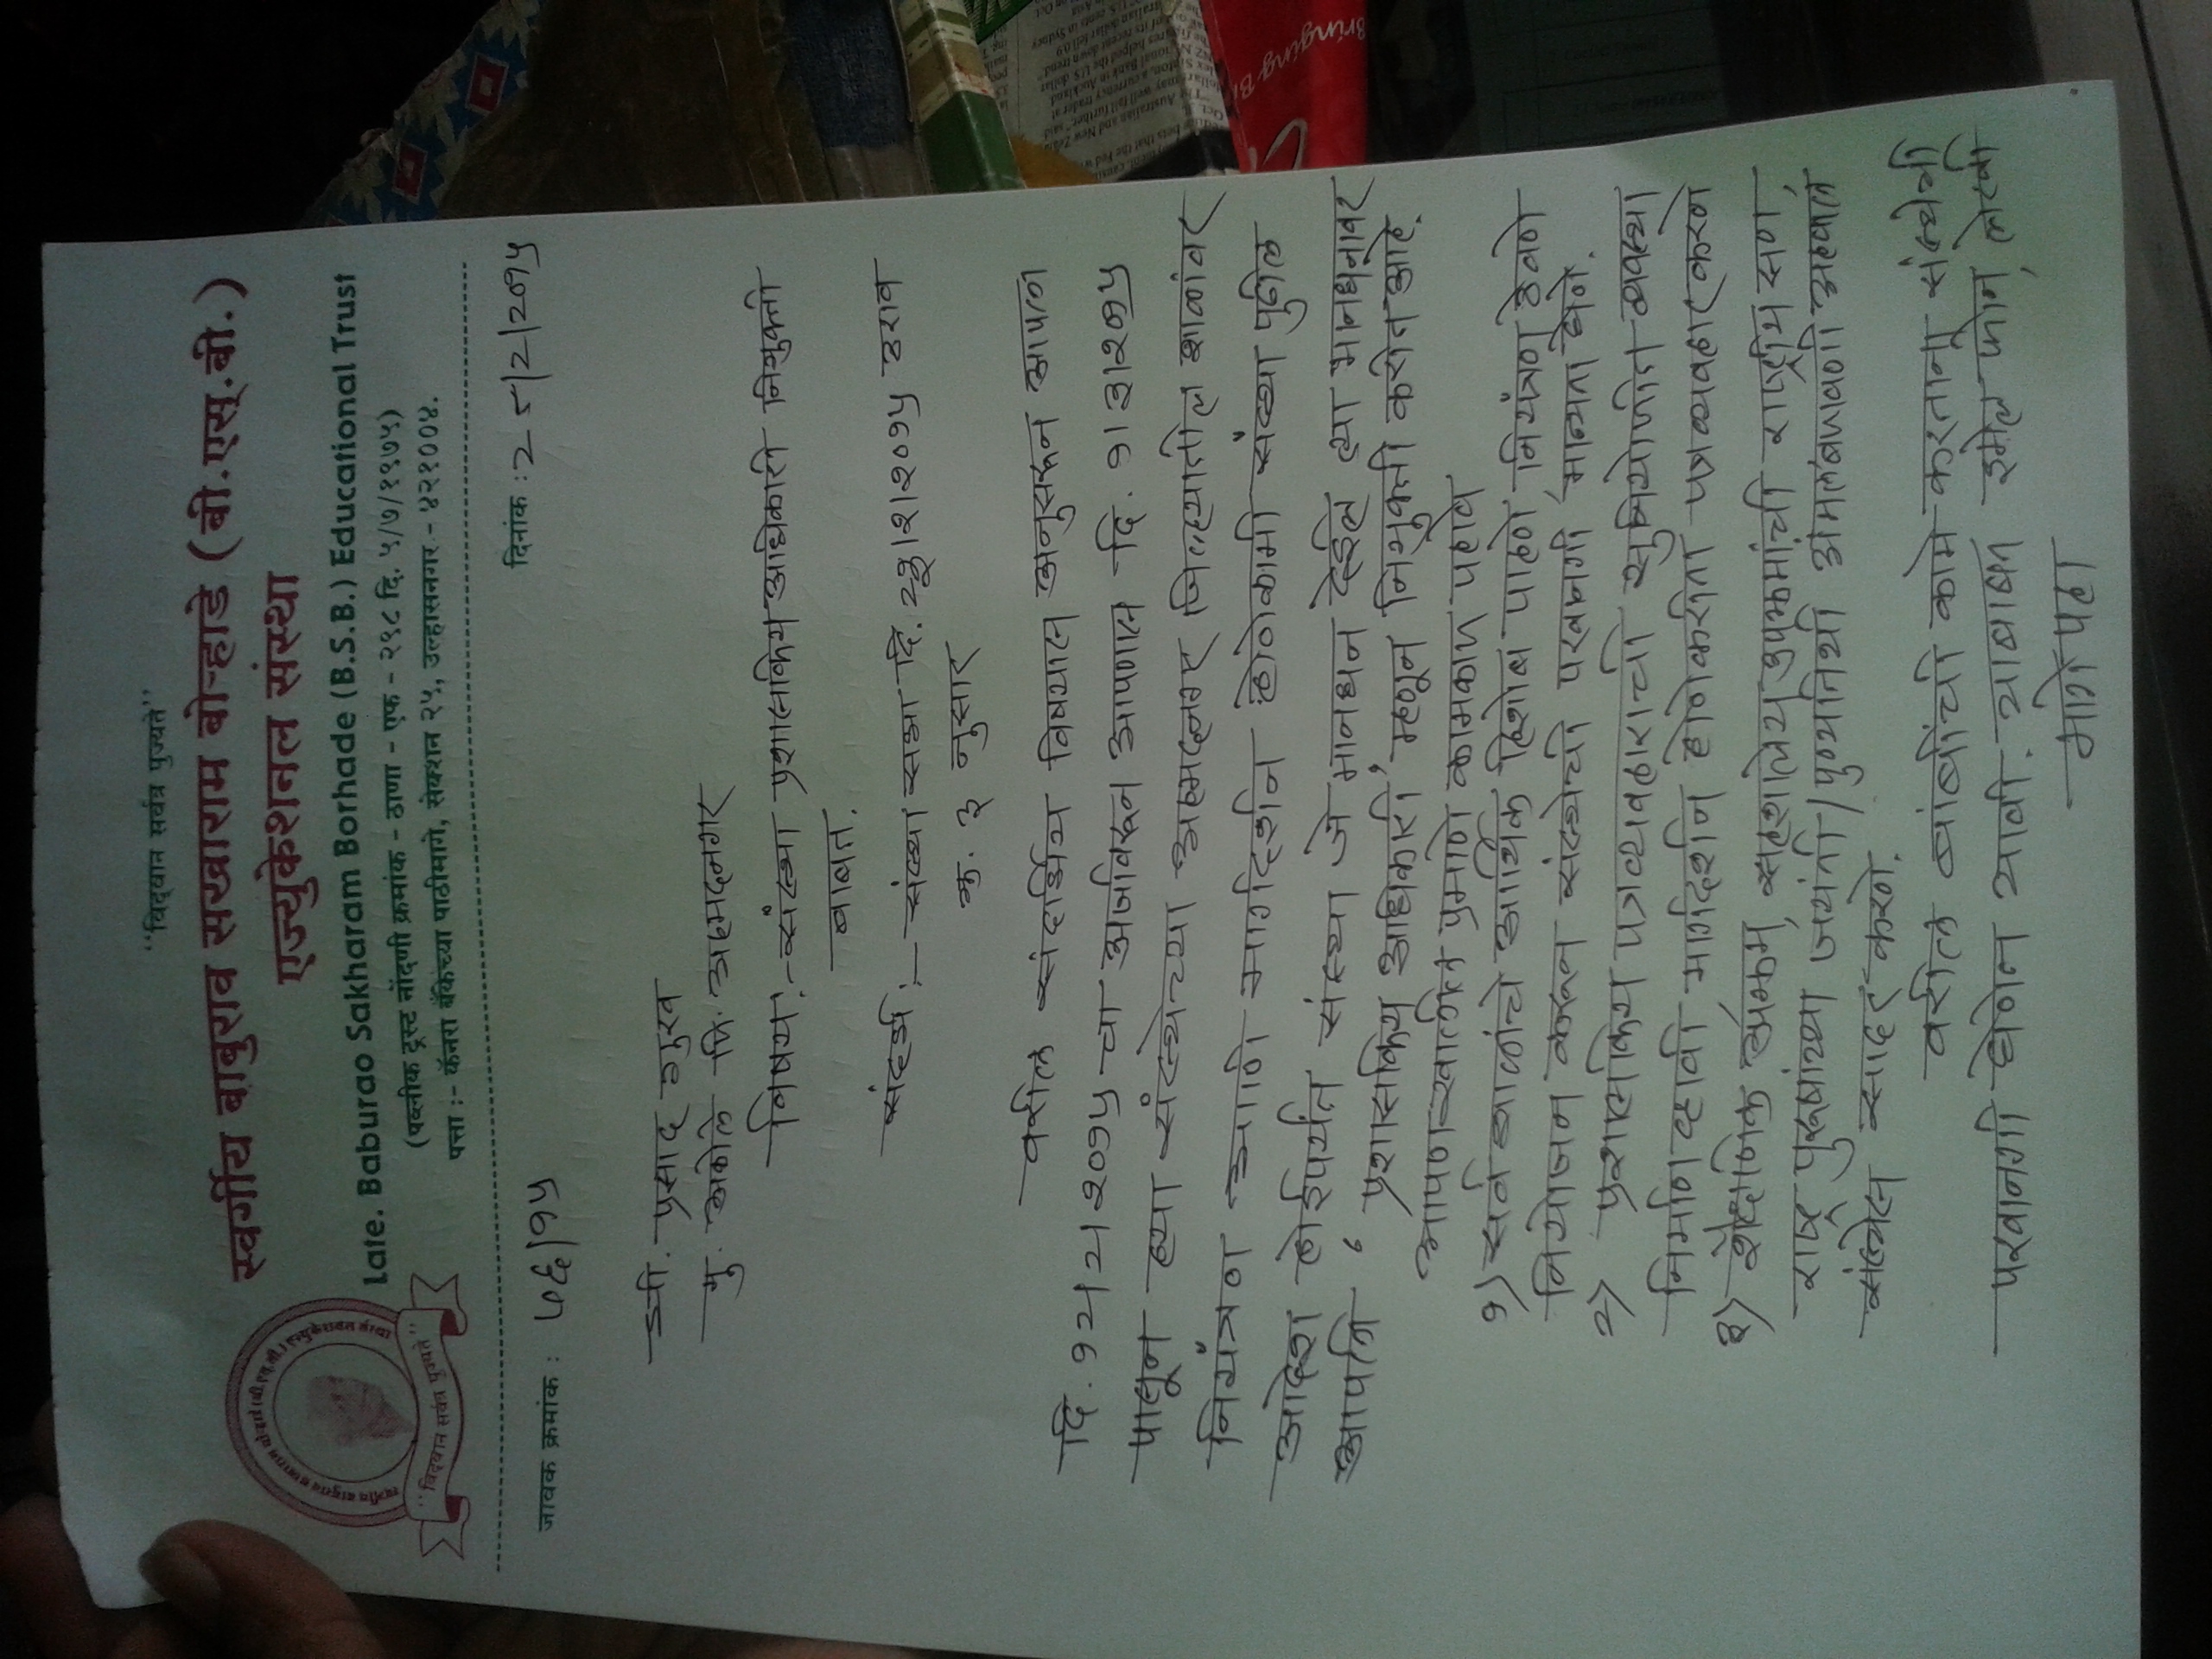 "विद्‌वान सर्वत्र पुज्यते"
स्वर्गीय बाबुराव सखाराम बोऱ्हाडे (बी.एस्.बी.)
एज्युकेशनल संस्था
Late. Baburao Sakharam Borhade (B.S.B.) Educational Trust
(पब्लीक ट्रस्ट नोंदणी क्रमांक - ठाणा - एफ - २९८ दि. ५/७/१९७५)
पत्ता :- कॅनरा बँकेच्या पाठीमागे, सेक्शन २५, उल्हासनगर - ४२१००४.
"विद्‌वान सर्वत्र पुज्यते"
जावक क्रमांक : ७६/१५
दिनांक : /2/2०१५
श्री. प्रसाद गुरव
मु. अकोले जि. अहमदनगर
विषय :- संस्था प्रशासकिय अधिकारी नियुक्ती
बाबत.
संदर्भ :- संस्था सभा दि. /२/२०१५ ठराव
क्र. ३ नुसार
वरील संदर्भिय विषयास अनुसरून आपला
दि. २०१५ चा अर्जावरून आपणास दि. १/३/२०१५
पासून ह्या संस्थेच्या अहमदनगर जिल्ह्यातील शाळांवर
नियंत्रण आणि मार्गदर्शन होणेकामी संस्था पुढील
आदेश होईपर्यंत संस्था जे मानधन देईल त्या मानधनावर
आपली 'प्रशासकिय अधिकारी' म्हणून नियुक्ती करीत आहे.
आपण खालील प्रमाणे कामकाज पहावे
१) सर्व शाळांचे आर्थिक हिशोब पाहणे, नियंत्रण ठेवणे
नियोजन करून संस्थेची परवानगी मान्यता घेणे.
2) प्रशासकिय पत्रव्यवहाराची सुनियोजीत व्यवस्था
निर्माण व्हावी मार्गदर्शन होणेकरीता पत्रव्यवहार करणे
३) शैक्षणिक सहशालेय उपक्रमांची राष्ट्रीय सण,
राष्ट्र पुरूषांच्या जयंती/पुण्यतिथी अंमलबजावणी अहवाल
संस्थेस सादर करणे.
वरील बांबींची कामे करताना संस्थेची
परवानगी घेणेत यावी. याबाबत इमेल फोन, लेखी
मागे पहा
Bringing